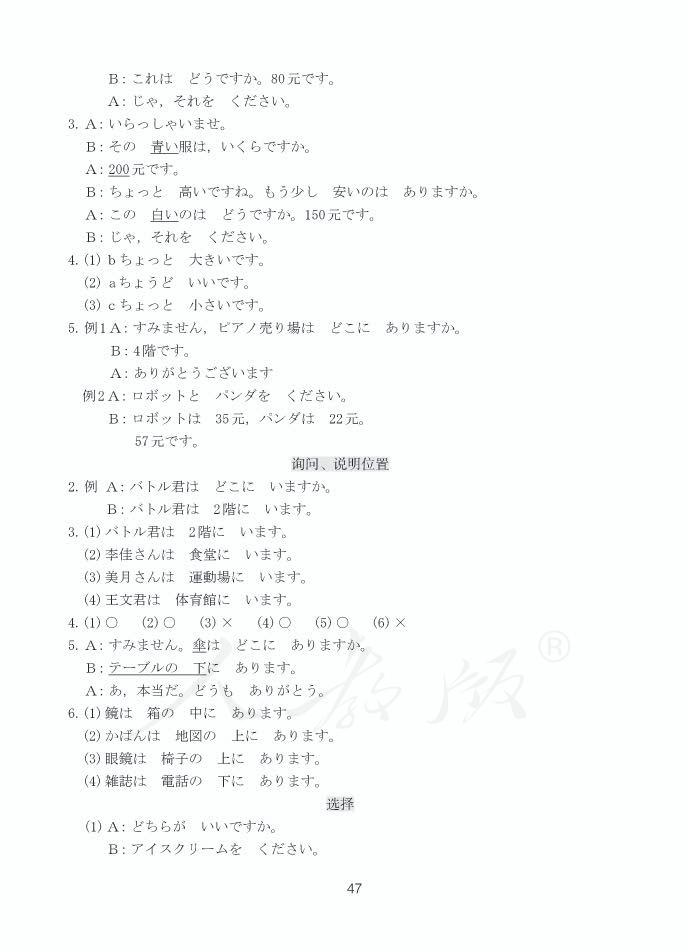 B：これは　どうですか。80元です。
A：じゃ，それを　ください。
3. A：いらっしゃいませ。
B：その　青い服は，いくらですか。
A：200元です。
B：ちょっと　高いですね。もう少し　安いのは　ありますか。
A：この　白いのは　どうですか。150元です。
B：じゃ，それを　ください。
4. (1) bちょっと　大きいです。
(2) aちょうど　いいです。
(3) cちょっと　小さいです。
5. 例1 A：すみません，ピアノ売り場は　どこに　ありますか。
B：4階です。
A：ありがとうございます
例2 A：ロボットと　パンダを　ください。
B：ロボットは　35元，パンダは　22元。
57元です。
询问、说明位置
2. 例 A：バトル君は　どこに　いますか。
B：バトル君は　2階に　います。
3. (1) バトル君は　2階に　います。
(2) 李佳さんは　食堂に　います。
(3) 美月さんは　運動場に　います。
(4) 王文君は　体育館に　います。
4. (1) ○　(2) ○　(3) ×　(4) ○　(5) ○　(6) ×
5. A：すみません。傘は　どこに　ありますか。
B：テーブルの　下に　あります。
A：あ，本当だ。どうも　ありがとう。
6. (1) 鏡は　箱の　中に　あります。
(2) かばんは　地図の　上に　あります。
(3) 眼鏡は　椅子の　上に　あります。
(4) 雑誌は　電話の　下に　あります。
选择
(1) A：どちらが　いいですか。
B：アイスクリームを　ください。
47
人教版®